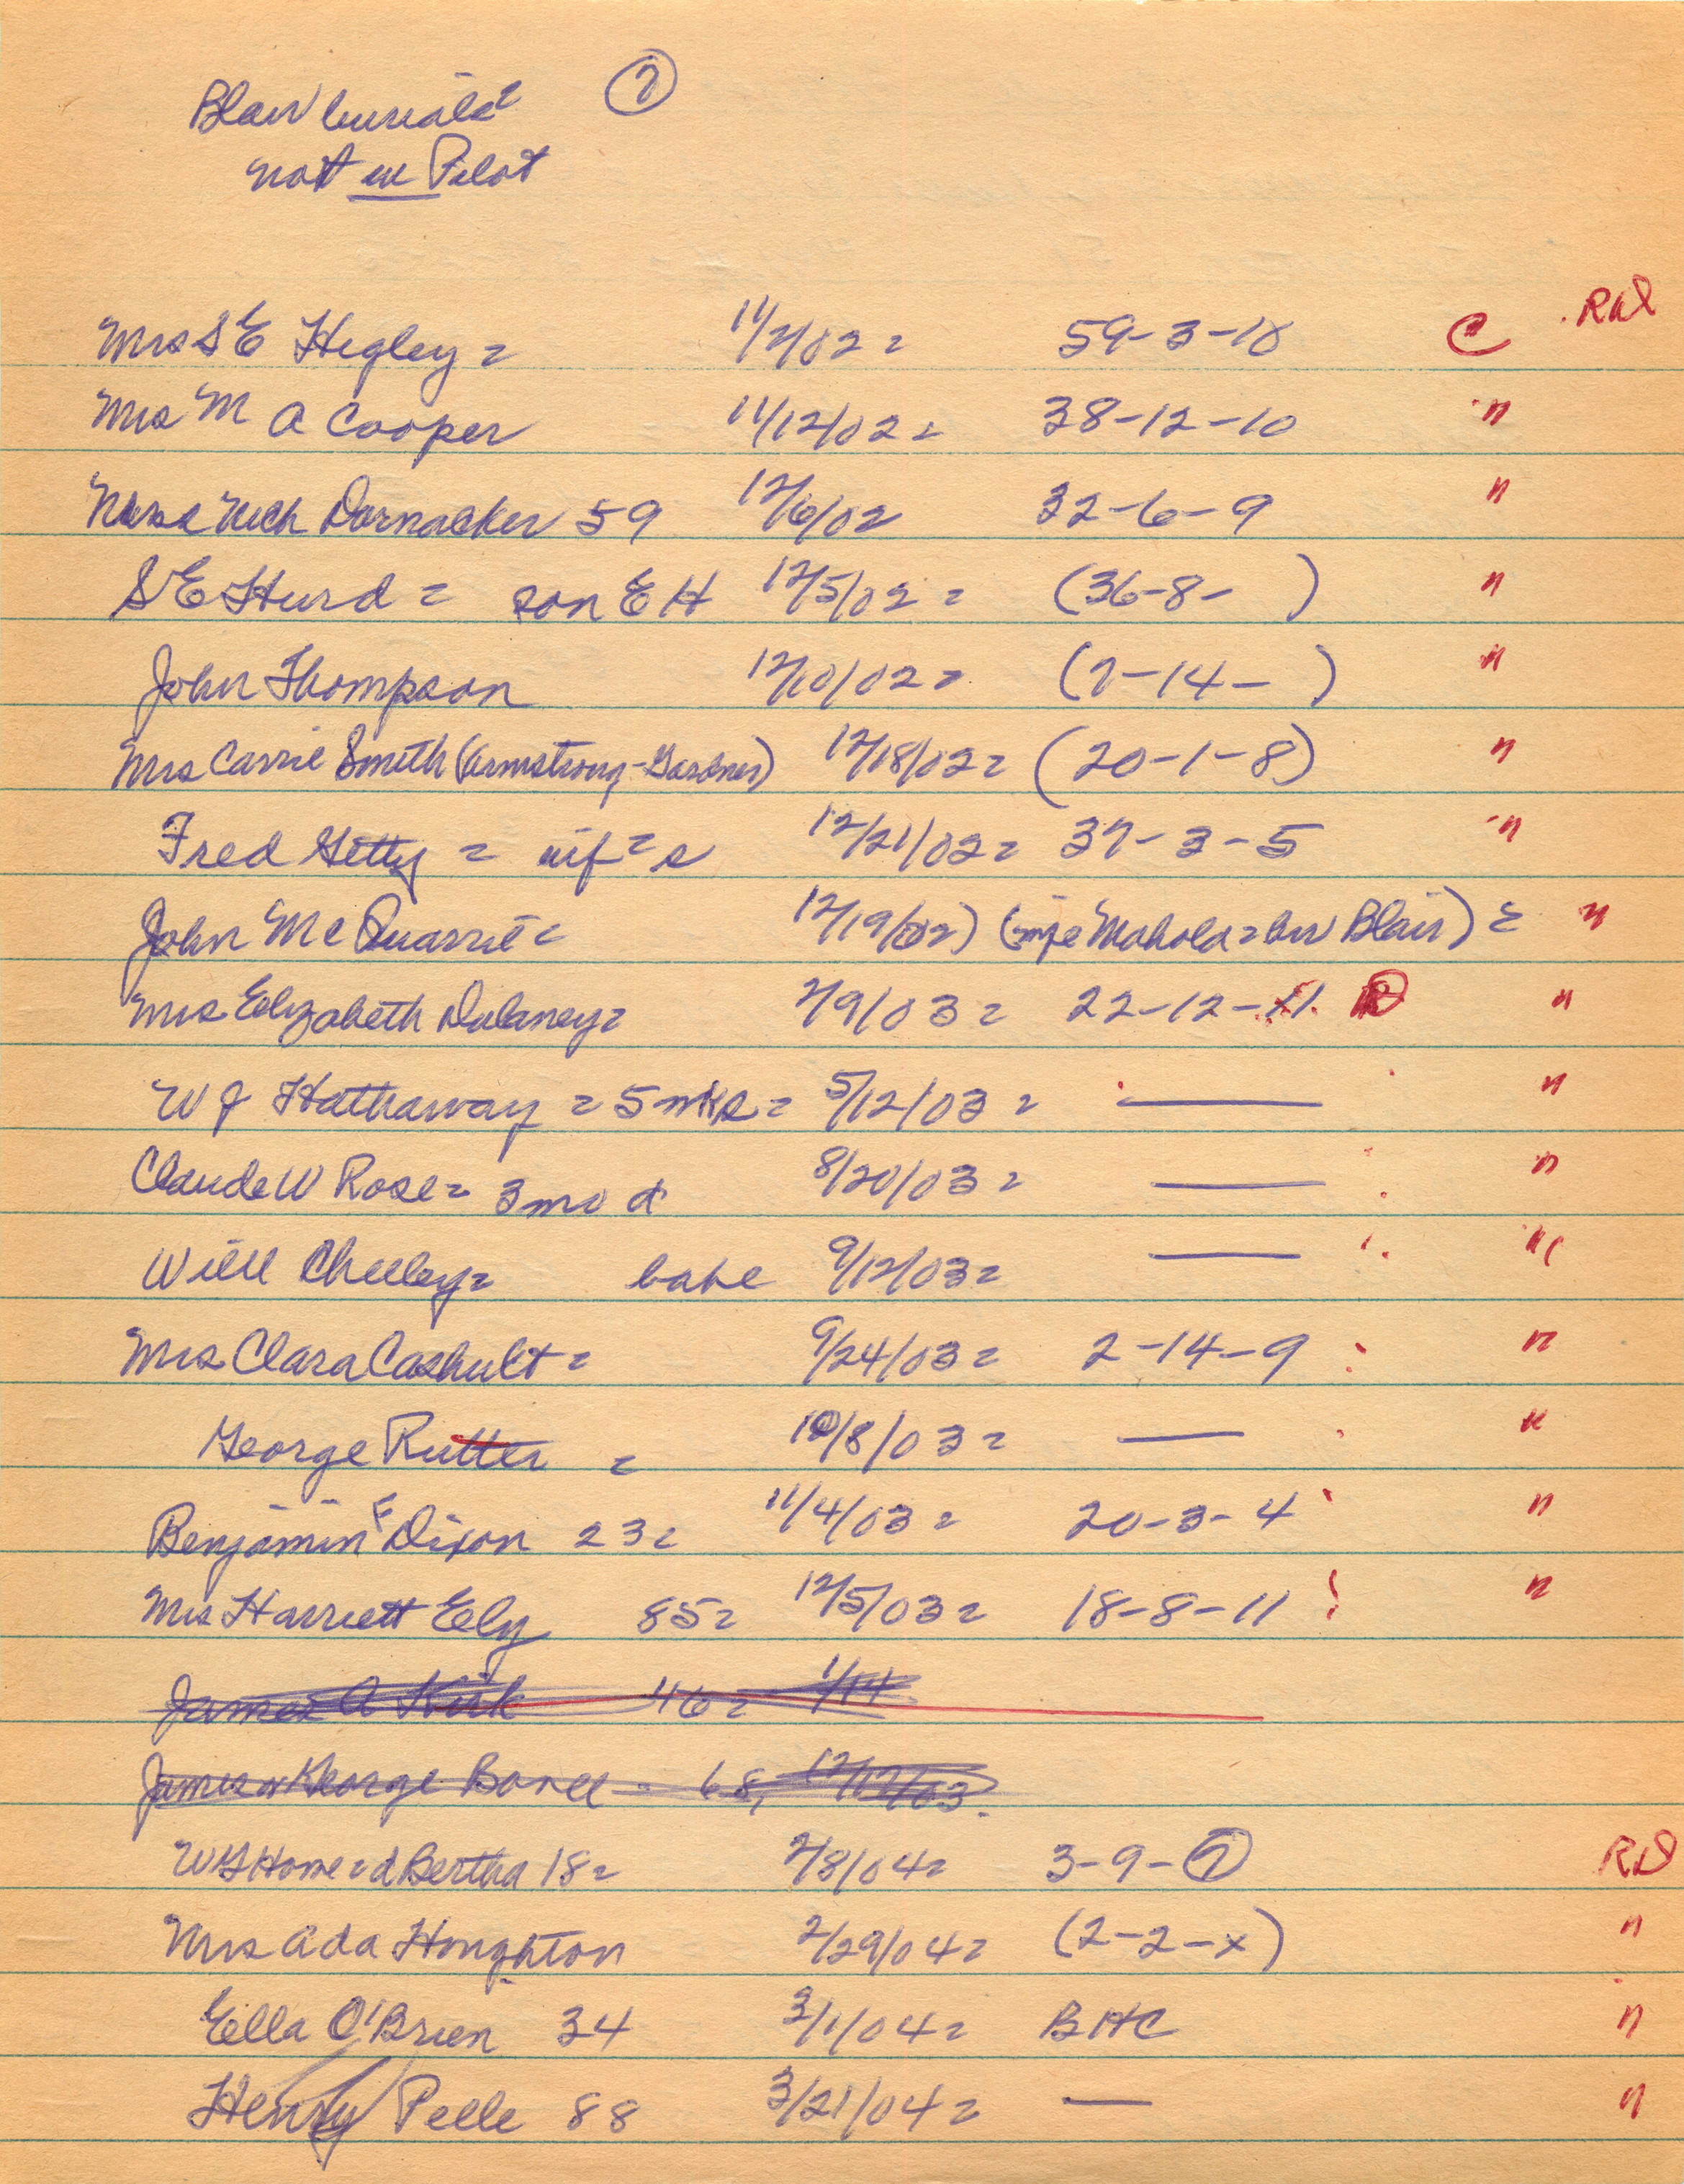 Blair burials 7
not in Pilot
RD
Mrs S E Hegley = 11/7/02 = 59-3-10 C
Mrs M A Cooper 11/12/02 = 38-12-10 "
Dornacker 59 12/6/02 32-6-9 "
S E Hurd = son E H 12/5/02 = (36-8- ) "
John Thompson 12/10/02 = (7-14- ) "
Mrs Carrie Smith (Armstrong-Gardner) 12/18/02 = (20-1-8) "
Fred Getty = inf = s 12/21/02 = 37-3-5 "
John McQuarrie = 12/19/02) (wife Mahola = bur Blair) = "
Mrs Elizabeth Dulaney = 2/9/03 = 22-12-11 "
W J Hathaway = 5 wks = 5/12/03 = — "
Claude W Rose = 3 mo d 8/20/03 = — "
Will Cheeley = babe 9/12/03 = — "
Mrs Clara Cashult = 9/24/03 = 2-14-9 "
George Rutter = 10/8/03 = — "
Benjamin F Dixon 23 = 11/4/03 = 20-3-4 "
Mrs Harriett Eely 85 = 12/5/03 = 18-8-11 "
James A Kirk 46 = 1/14
James George 68, 12/17/03.
W G Horne = d Bertha 18 = 2/8/04 = 3-9-7 RD
Mrs Ada Houghton 2/29/04 = (2-2-x) "
Ella O'Brien 34 3/1/04 = BHC "
Henry Pelle 88 3/21/04 = — "